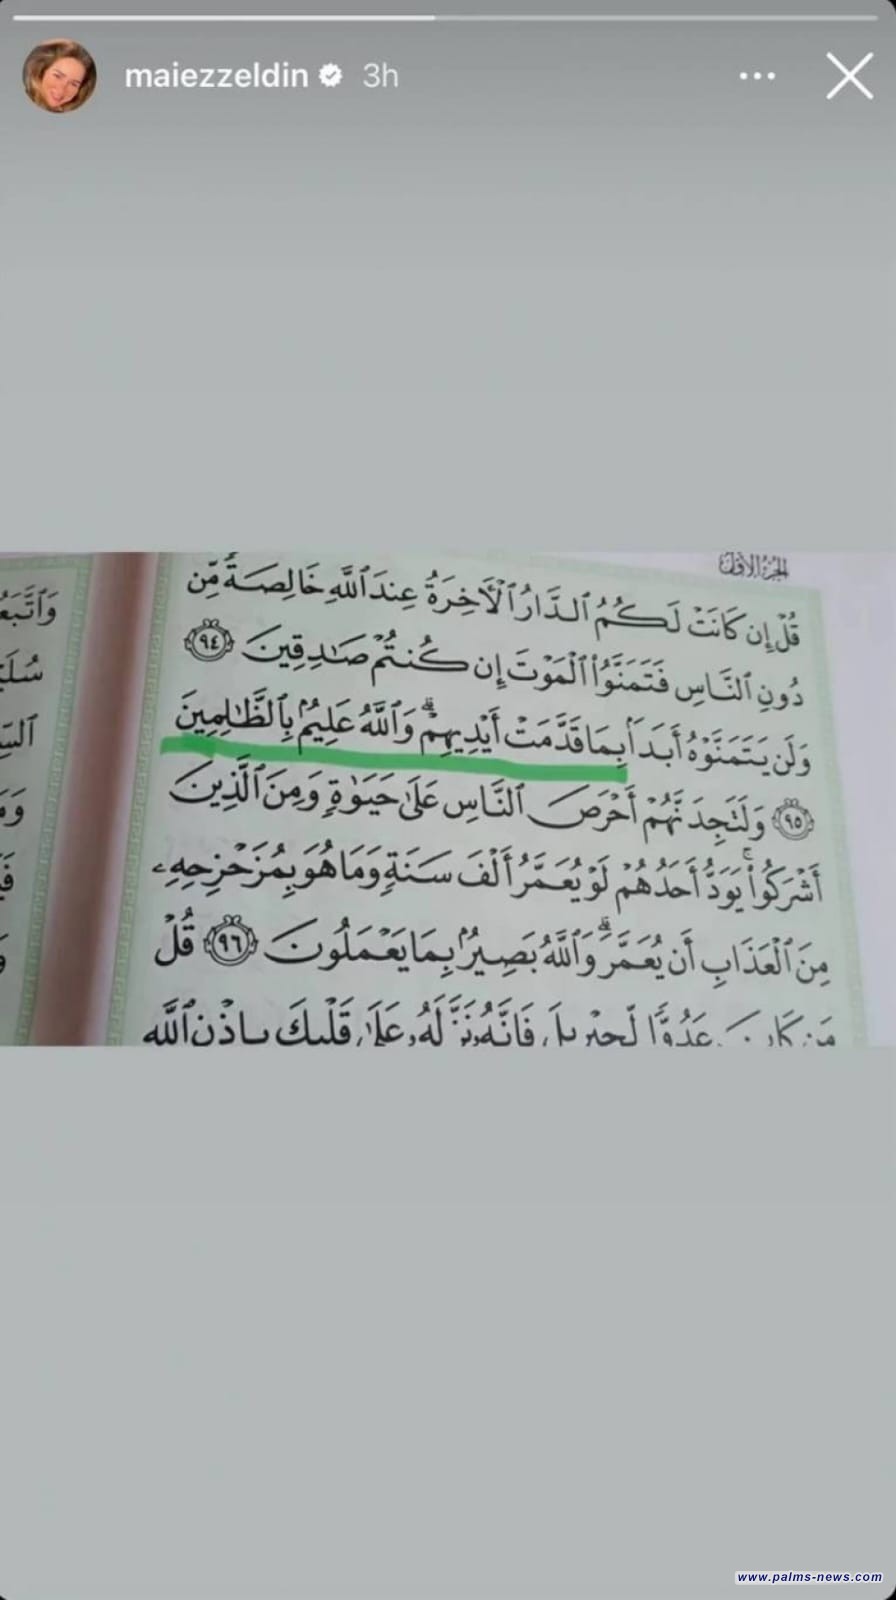 maiezzeldin 3h
الجزء الأول
قُلۡ إِن كَانَتۡ لَكُمُ ٱلدَّارُ ٱلۡأٓخِرَةُ عِندَ ٱللَّهِ خَالِصَةٗ مِّن
دُونِ ٱلنَّاسِ فَتَمَنَّوُاْ ٱلۡمَوۡتَ إِن كُنتُمۡ صَٰدِقِينَ ٩٤
وَلَن يَتَمَنَّوۡهُ أَبَدَۢا بِمَا قَدَّمَتۡ أَيۡدِيهِمۡۚ وَٱللَّهُ عَلِيمُۢ بِٱلظَّٰلِمِينَ
٩٥ وَلَتَجِدَنَّهُمۡ أَحۡرَصَ ٱلنَّاسِ عَلَىٰ حَيَوٰةٖ وَمِنَ ٱلَّذِينَ
أَشۡرَكُواْۚ يَوَدُّ أَحَدُهُمۡ لَوۡ يُعَمَّرُ أَلۡفَ سَنَةٖ وَمَا هُوَ بِمُزَحۡزِحِهِۦ
مِنَ ٱلۡعَذَابِ أَن يُعَمَّرَۗ وَٱللَّهُ بَصِيرُۢ بِمَا يَعۡمَلُونَ ٩٦ قُلۡ
مَن كَانَ عَدُوّٗا لِّجِبۡرِيلَ فَإِنَّهُۥ نَزَّلَهُۥ عَلَىٰ قَلۡبِكَ بِإِذۡنِ ٱللَّهِ
www.palms-news.com